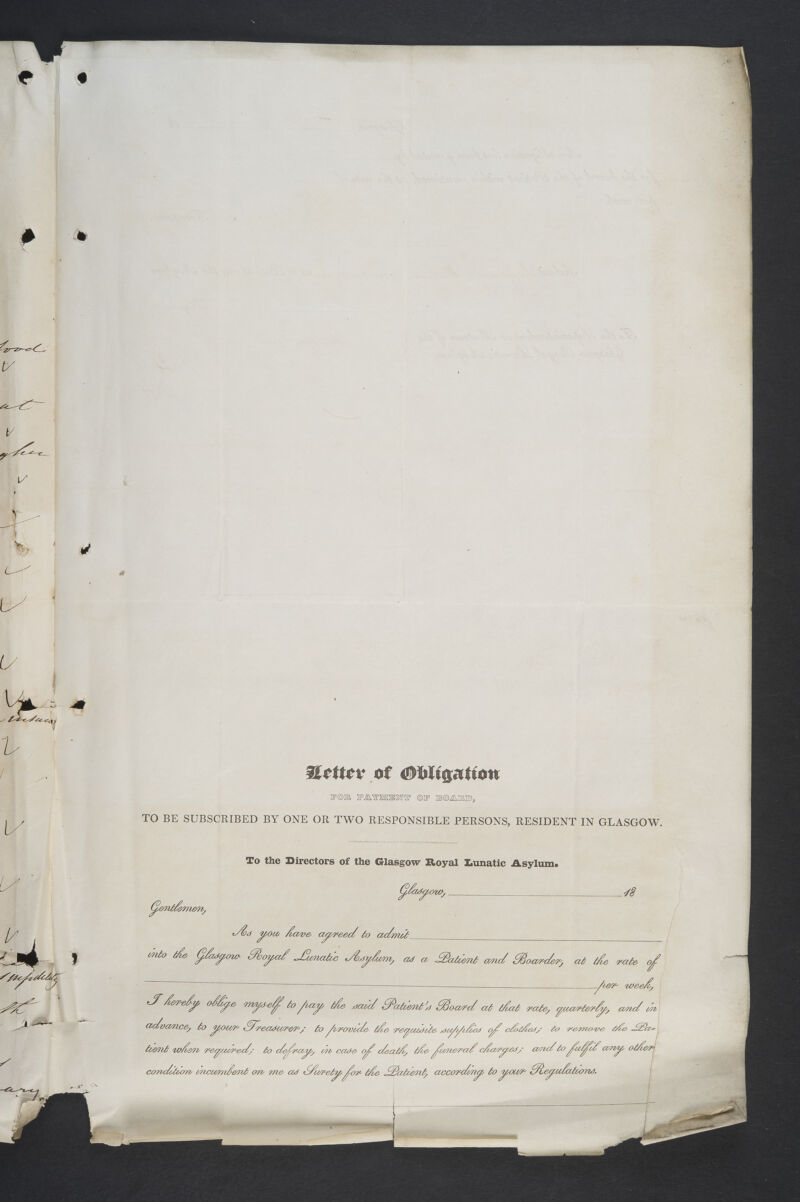 Letter of Obligation
FOR PAYMENT OF BOARD,
TO BE SUBSCRIBED BY ONE OR TWO RESPONSIBLE PERSONS, RESIDENT IN GLASGOW.
To the Directors of the Glasgow Royal Lunatic Asylum.
Glasgow, 18
Gentlemen,
As you have agreed to admit
into the Glasgow Royal Lunatic Asylum, as a Patient and Boarder, at the rate of
per week,
I hereby oblige myself to pay the said Patient's Board at that rate, quarterly, and in
advance, to your Treasurer; to provide the requisite supplies of clothes; to remove the Pa-
tient when required; to defray, in case of death, the funeral charges; and to fulfil any other
condition incumbent on me as Surety for the Patient, according to your Regulations.